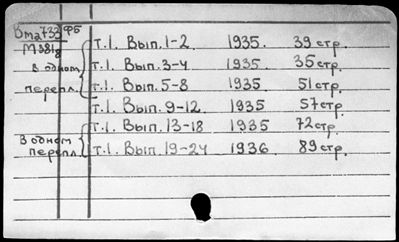 Вта733 ФБ
М381д
т.1. Вып. 1-2. 1935. 39 стр.
в одном т.1. Вып. 3-4 1935. 35 стр.
перепл. т.1. Вып. 5-8 1935. 51 стр.
т.1. Вып. 9-12. 1935 57 стр.
В одном т.1. Вып. 13-18 1935 72 стр.
перепл. т.1. Вып. 19-24 1936 89 стр.